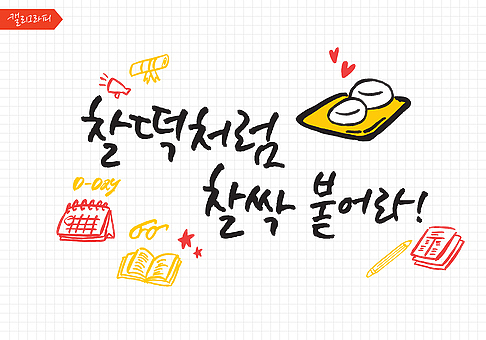 캘리그라피
찰떡처럼
찰싹 붙어라!
D-Day